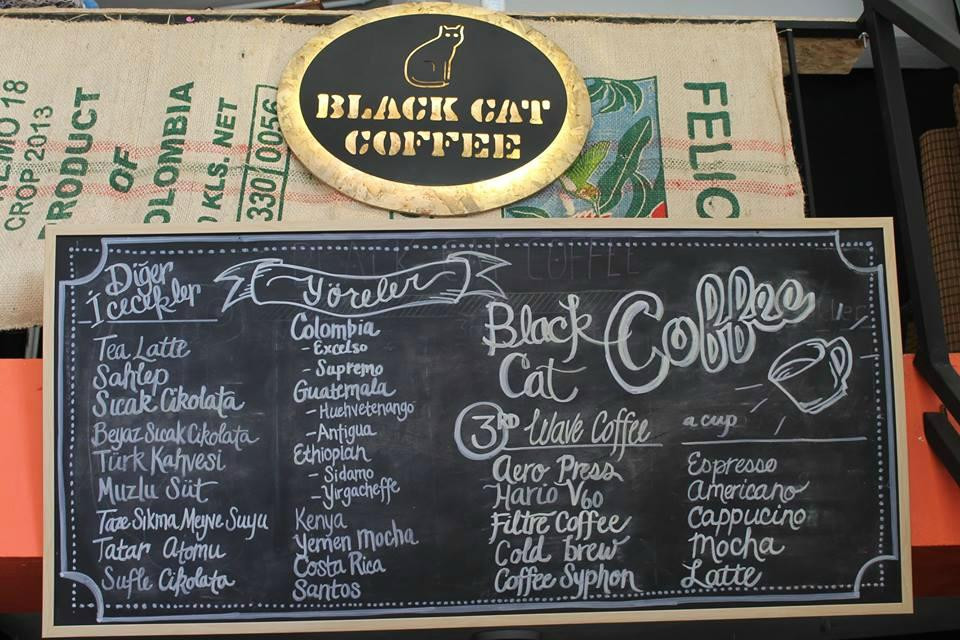 EMO 18
CROP 2013
PRODUCT
OF
COLOMBIA
KLS. NET
330 0056
BLACK CAT
COFFEE
FELIC
COFFEE
Diğer
İcecikler
Tea Latte
Sahlep
Sıcak Cikolata
Beyaz Sıcak Cikolata
Türk Kahvesi
Muzlu Süt
Taze Sıkma Meyve Suyu
Tatar Atomu
Sufle Cikolata
Yöreler
Colombia
- Excelso
- Supremo
Guatemala
- Huehvetenango
- Antigua
Ethiopian
- Sidamo
- Yırgacheffe
Kenya
Yemen Mocha
Costa Rica
Santos
Black
Cat
Coffee
3RD Wave Coffee
Aero Press
Hario V60
Filtre Coffee
Cold brew
Coffee Syphon
a cup
Espresso
Americano
Cappucino
Mocha
Latte